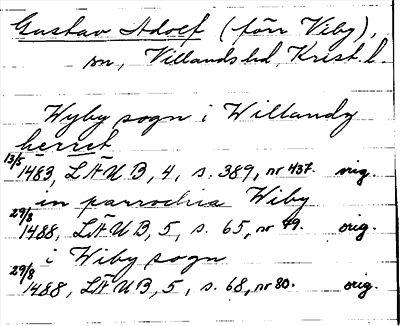 Gustav Adolf (förr Viby),
sn, Villands hd, Krist. l.
Wyby sogn i Willandz
herret
13/5 1483, LÄUB, 4, s. 389, nr 437. orig.
in parrochia Wiby
29/8 1488, LÄUB, 5, s. 65, nr 79. orig.
i Wiby sogn
29/8 1488, LÄUB, 5, s. 68, nr 80. orig.